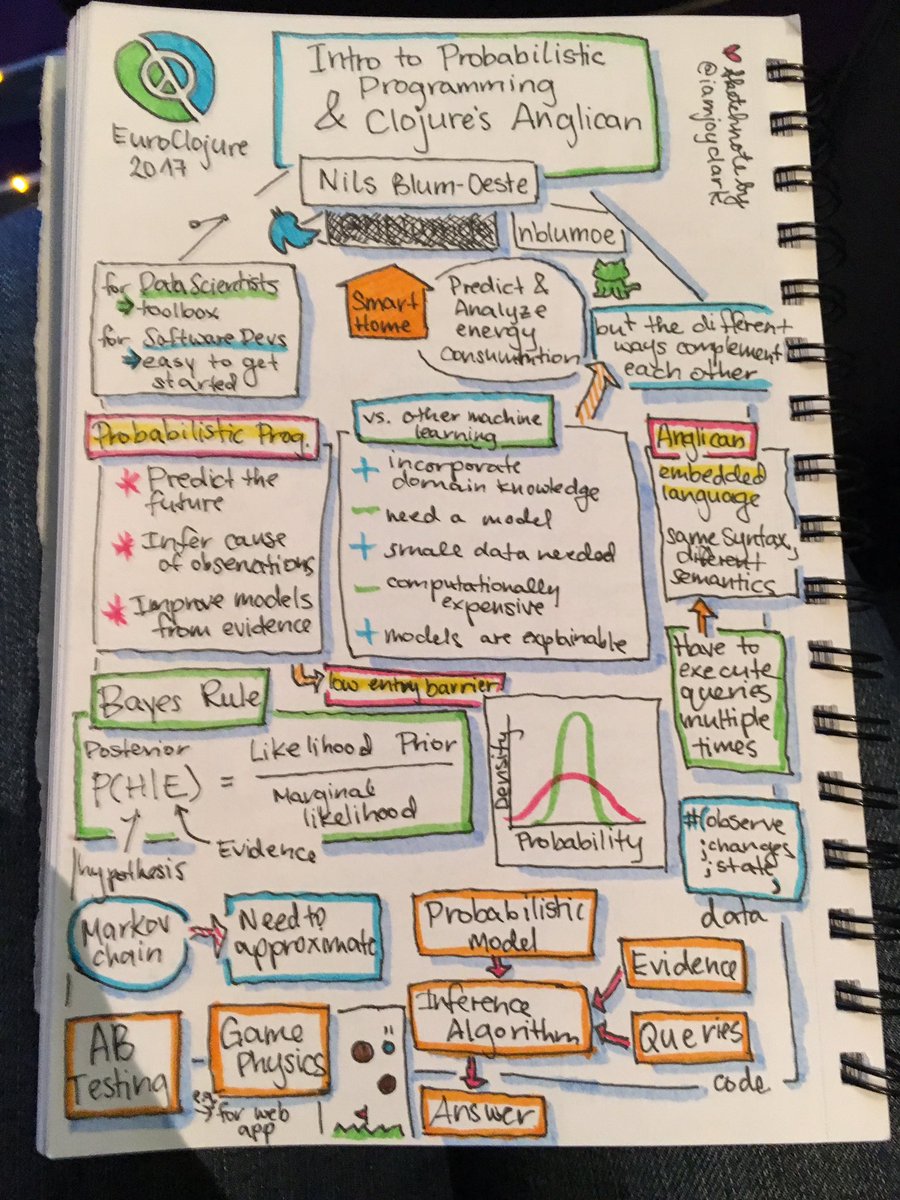 Intro to Probabilistic
Programming
& Clojure's Anglican
EuroClojure
2017
♥ Sketchnote by
@iamjoyclark
Nils Blum-Oeste
nblumoe
for Data Scientists
→ toolbox
for Software Devs
→ easy to get
started
Smart
Home
Predict &
Analyze
energy
but the different
ways complement
each other
Probabilistic Prog.
* Predict the
future
* Infer cause
of observations
* Improve models
from evidence
vs. other machine
learning
+ incorporate
domain knowledge
- need a model
+ small data needed
- computationally
expensive
+ models are explainable
Anglican
embedded
language
same syntax,
different
semantics
Have to
execute
queries
multiple
times
low entry barrier
Bayes Rule
Posterior
P(H|E) =
Likelihood Prior
Marginal
likelihood
hypothesis
Evidence
Density
Probability
#(observe
;changes
;state,
data
Markov
chain
Need to
approximate
Probabilistic
Model
Inference
Algorithm
Evidence
Queries
Answer
code
AB
Testing
Game
Physics
e.g.
→ for web
app